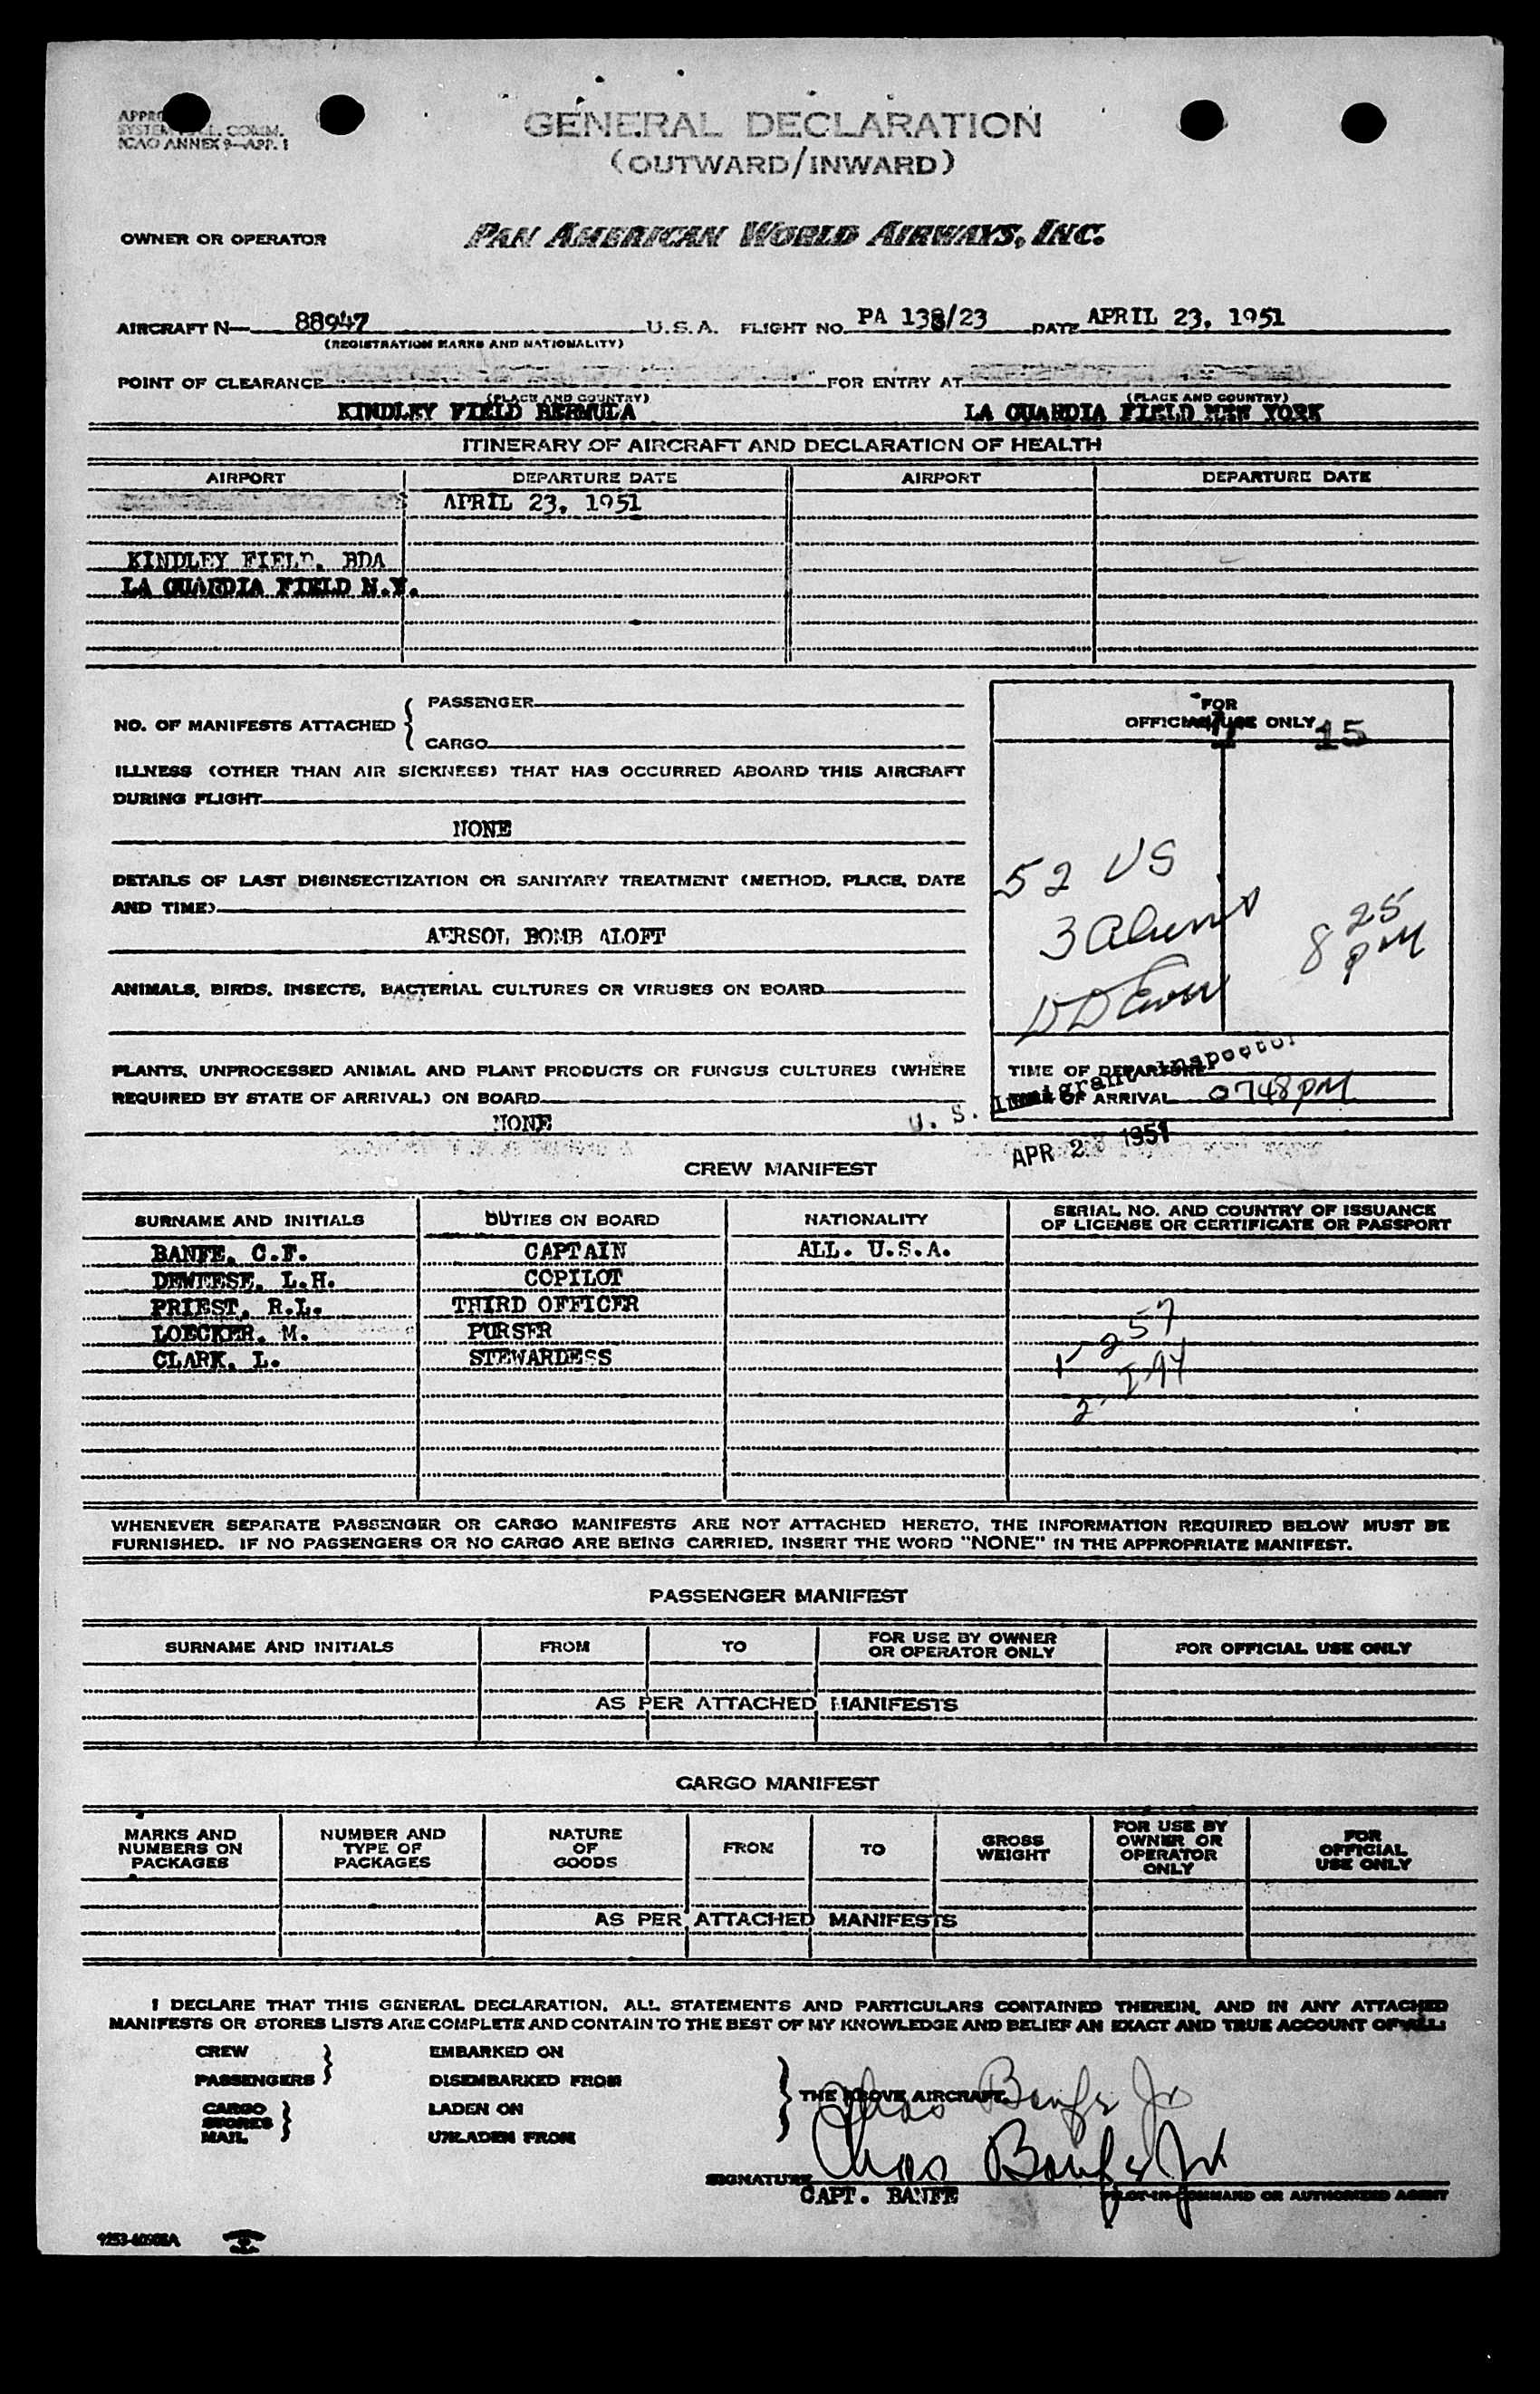 GENERAL DECLARATION
(OUTWARD/INWARD)
SYSTEM
COMM.
ICAO ANNEX 9-APP. 1
OWNER OR OPERATOR PAN AMERICAN WORLD AIRWAYS, INC.
AIRCRAFT N- 88947 U.S.A. FLIGHT NO. PA 138/23 DATE APRIL 23, 1951
(REGISTRATION MARKS AND NATIONALITY)
POINT OF CLEARANCE FOR ENTRY AT
(PLACE AND COUNTRY) (PLACE AND COUNTRY)
KINDLEY FIELD BERMUDA LA GUARDIA FIELD NEW YORK
ITINERARY OF AIRCRAFT AND DECLARATION OF HEALTH
AIRPORT DEPARTURE DATE AIRPORT DEPARTURE DATE
APRIL 23, 1951
KINDLEY FIELD, BDA
LA GUARDIA FIELD N.Y.
NO. OF MANIFESTS ATTACHED { PASSENGER
CARGO
ILLNESS (OTHER THAN AIR SICKNESS) THAT HAS OCCURRED ABOARD THIS AIRCRAFT
DURING FLIGHT
NONE
DETAILS OF LAST DISINSECTIZATION OR SANITARY TREATMENT (METHOD, PLACE, DATE
AND TIME)
AERSOL BOMB ALOFT
ANIMALS, BIRDS, INSECTS, BACTERIAL CULTURES OR VIRUSES ON BOARD
PLANTS, UNPROCESSED ANIMAL AND PLANT PRODUCTS OR FUNGUS CULTURES (WHERE
REQUIRED BY STATE OF ARRIVAL) ON BOARD
NONE
FOR
OFFICIAL USE ONLY 15
52 US
3 aliens
8 25 PM
TIME OF DEPARTURE
TIME OF ARRIVAL 0748 PM
U. S. Immigrant Inspector
APR 23 1951
CREW MANIFEST
SURNAME AND INITIALS DUTIES ON BOARD NATIONALITY SERIAL NO. AND COUNTRY OF ISSUANCE
OF LICENSE OR CERTIFICATE OR PASSPORT
BANFE, C.F. CAPTAIN ALL. U.S.A.
DEWEESE, L.H. COPILOT
PRIEST, R.L. THIRD OFFICER
LOECKER, M. PURSER
CLARK, L. STEWARDESS
WHENEVER SEPARATE PASSENGER OR CARGO MANIFESTS ARE NOT ATTACHED HERETO, THE INFORMATION REQUIRED BELOW MUST BE
FURNISHED. IF NO PASSENGERS OR NO CARGO ARE BEING CARRIED, INSERT THE WORD "NONE" IN THE APPROPRIATE MANIFEST.
PASSENGER MANIFEST
SURNAME AND INITIALS FROM TO FOR USE BY OWNER
OR OPERATOR ONLY FOR OFFICIAL USE ONLY
AS PER ATTACHED MANIFESTS
CARGO MANIFEST
MARKS AND
NUMBERS ON
PACKAGES
NUMBER AND
TYPE OF
PACKAGES
NATURE
OF
GOODS
FROM
TO
GROSS
WEIGHT
FOR USE BY
OWNER OR
OPERATOR
ONLY
FOR
OFFICIAL
USE ONLY
AS PER ATTACHED MANIFESTS
I DECLARE THAT THIS GENERAL DECLARATION, ALL STATEMENTS AND PARTICULARS CONTAINED THEREIN, AND IN ANY ATTACHED
MANIFESTS OR STORES LISTS ARE COMPLETE AND CONTAIN TO THE BEST OF MY KNOWLEDGE AND BELIEF AN EXACT AND TRUE ACCOUNT OF ALL:
CREW EMBARKED ON
PASSENGERS DISEMBARKED FROM
CARGO LADEN ON
STORES
MAIL UNLADEN FROM
THE ABOVE AIRCRAFT.
Chas Banfe Jr
SIGNATURE Chas Banfe Jr
CAPT. BANFE PILOT-IN-COMMAND OR AUTHORIZED AGENT